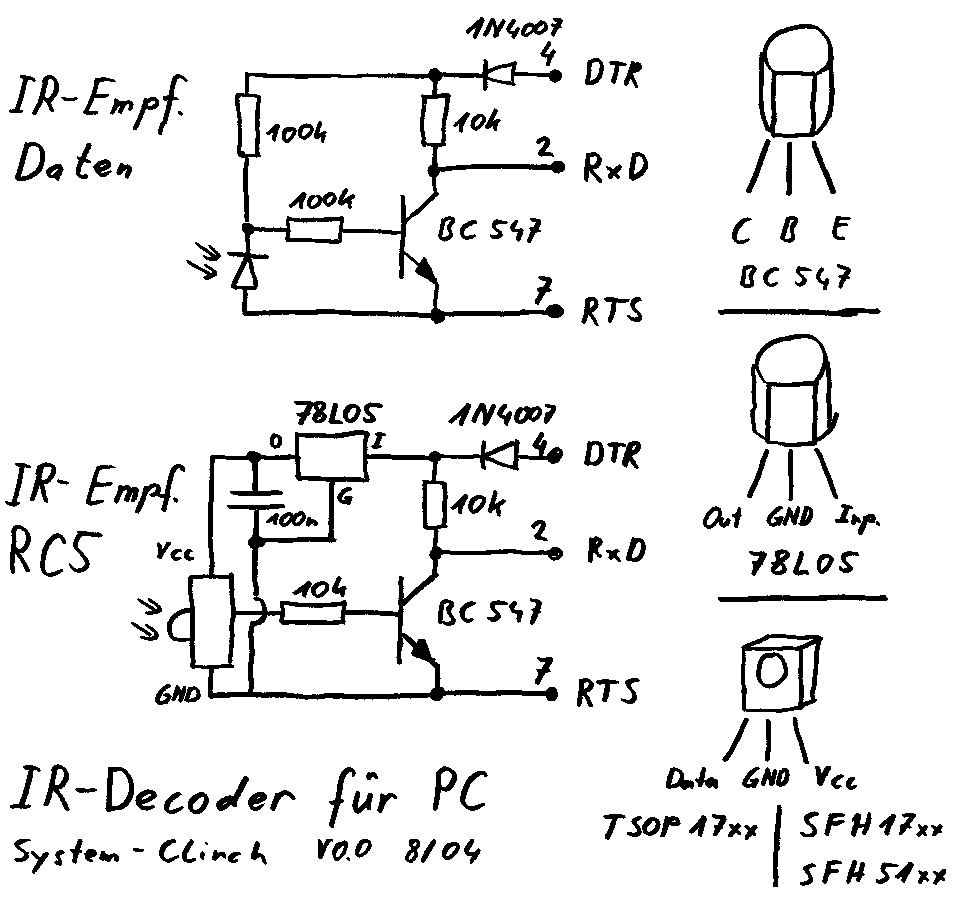 IR-Empf.
Daten
1N4007
4 DTR
100k
10k
2 RxD
100k
BC 547
7 RTS
C B E
BC 547
IR-Empf.
RC5
78L05
O I
G
1N4007
4 DTR
100n
10k
2 RxD
Vcc
10k
BC 547
GND
7 RTS
Out GND Inp.
78L05
Data GND Vcc
TSOP 17xx
SFH 17xx
SFH 51xx
IR-Decoder für PC
System-Clinch V0.0 8/04